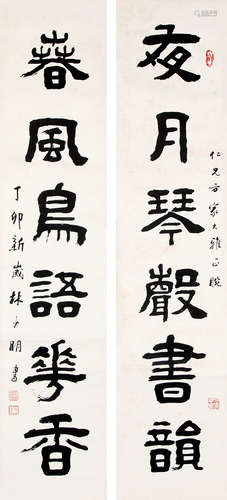 夜月琴聲書韻
仁兄方家大雅正腕
春風鳥語華香
丁卯新歲林方明書